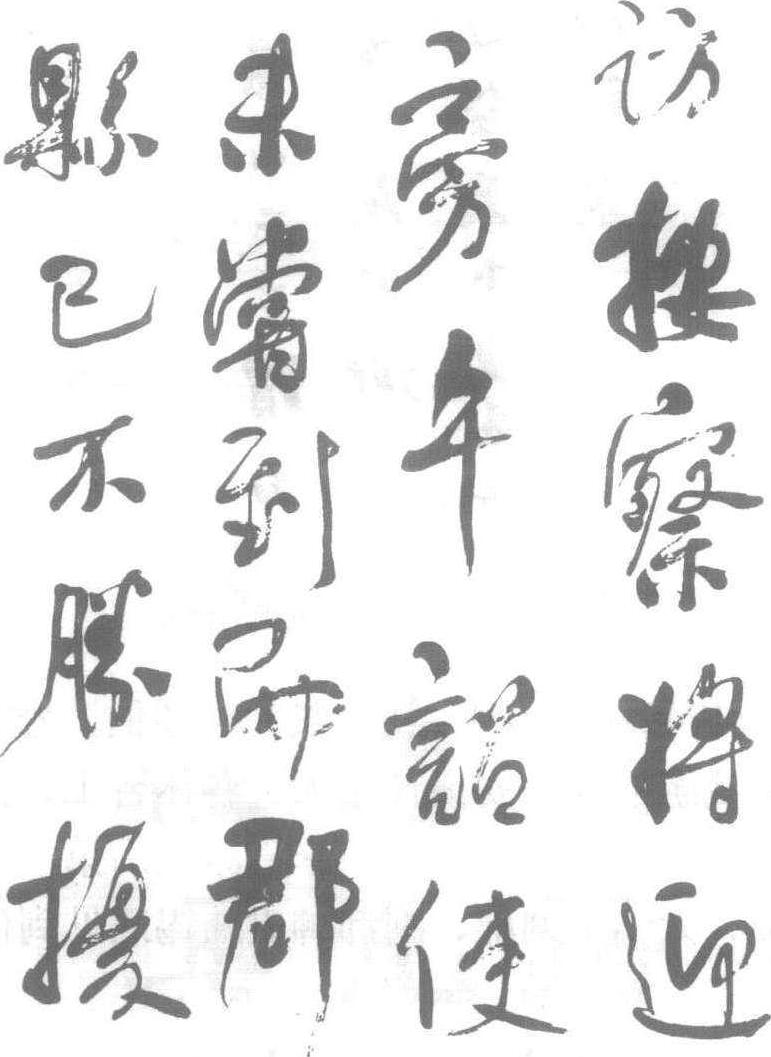 訪按察將迎
旁午詔使
未嘗到而郡
縣已不勝擾